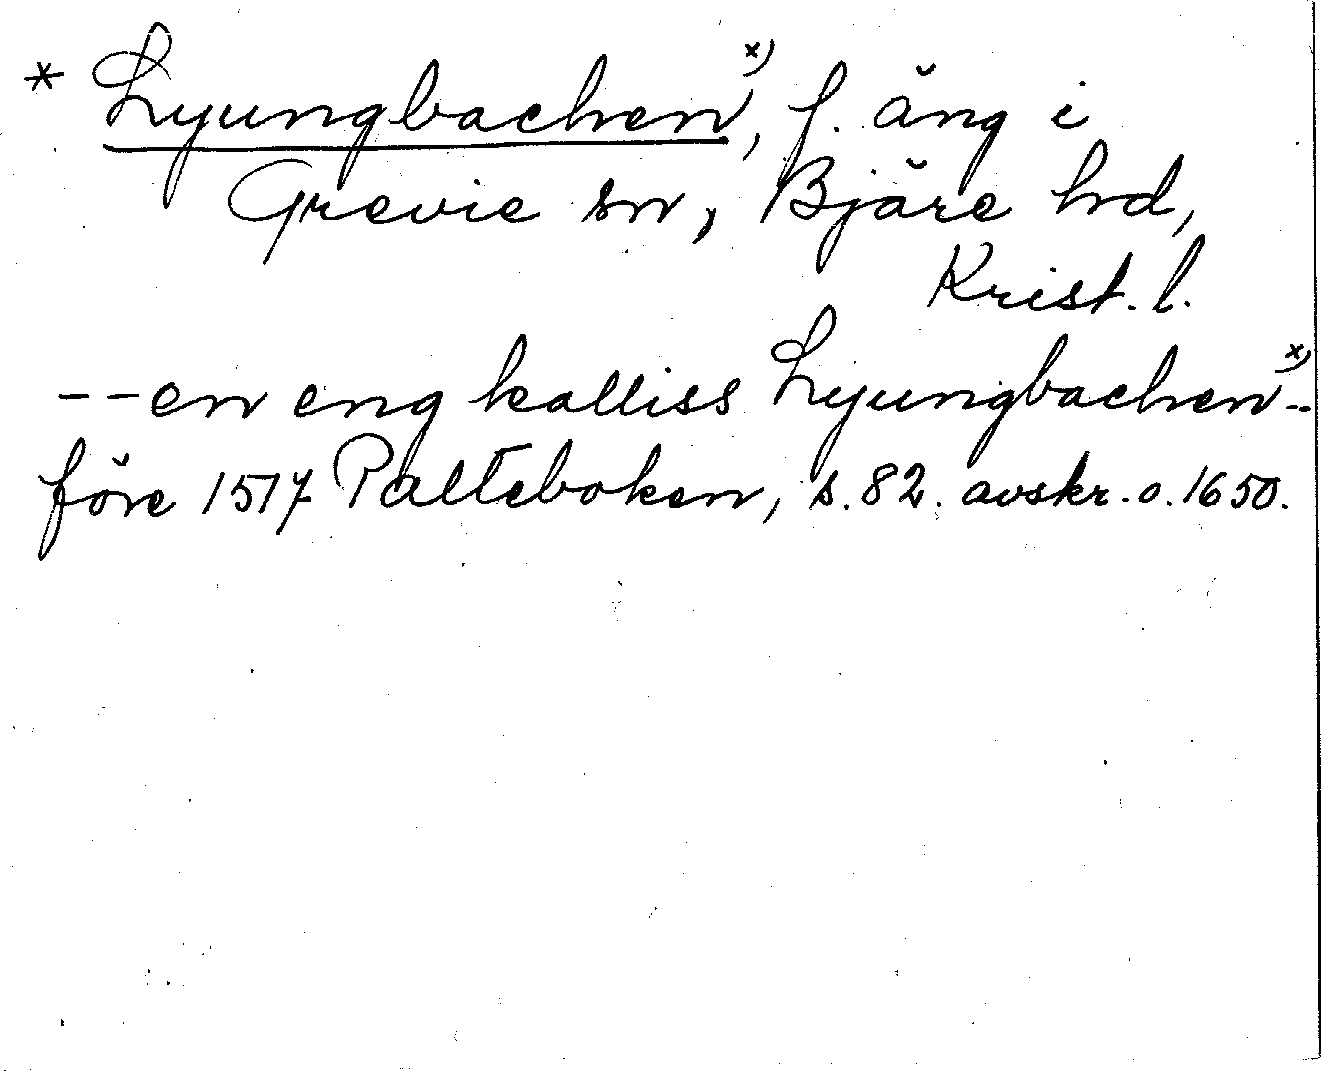 * Lyungbachen x), f. äng i
Grevie sn, Bjäre hd,
Krist. l.
-- en eng kalliss Lyungbachen x) --
före 1517 Palteboken, s. 82. avskr. o. 1650.